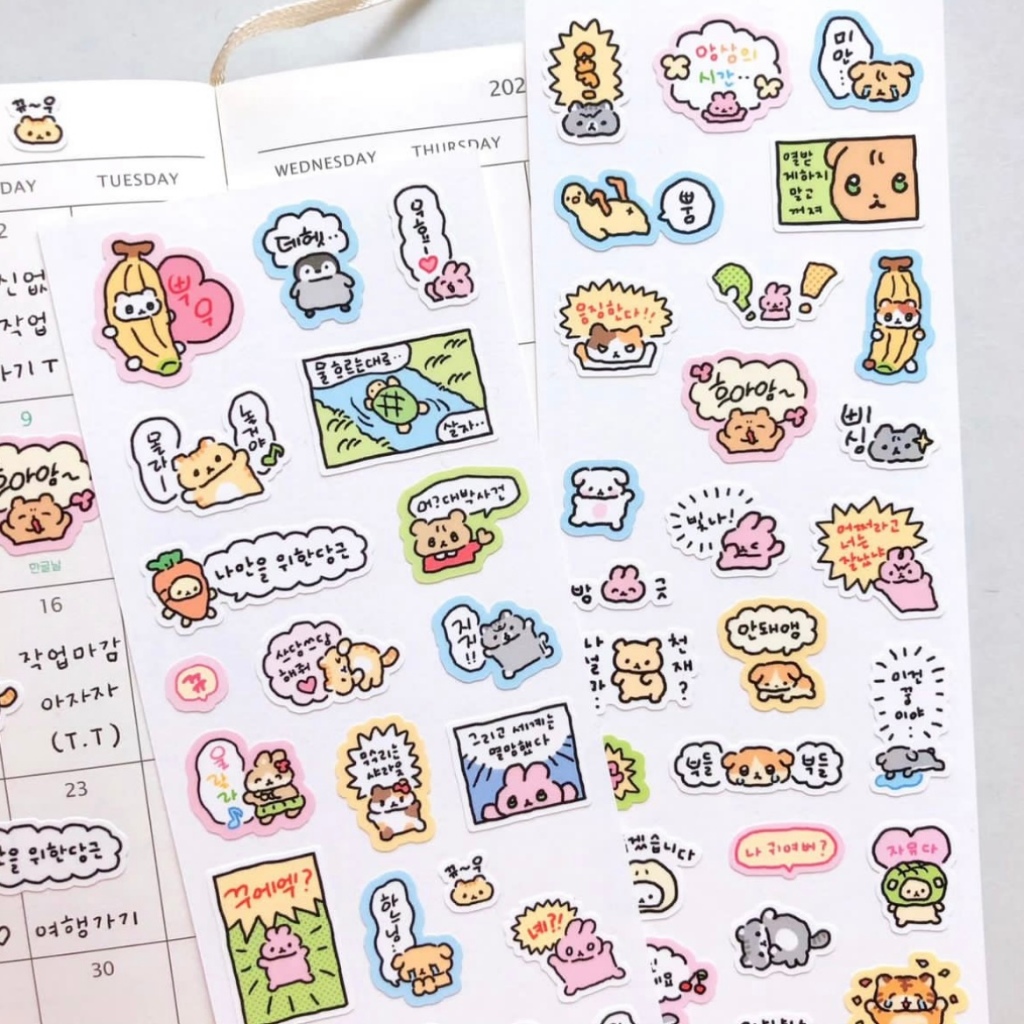 뀨~우
202
DAY
TUESDAY
WEDNESDAY
THURSDAY
2
작업
가기 T
9
호아암~
한글날
16
작업마감
아자자
(T.T)
23
을 위한당근
여행가기
30
뿌
우
데헷..
우효!~
몰라~
놀거야
물 흐르는대로..
살자..
어? 대박사건
나만을 위한당근
쓰담쓰담
해줘
지지!!
뀨
울
랄
라
뭇소리는
샤라웃
그리고 세계는
멸망했다
꾸에엑?
하느님..
뀨~우
녜?!
앙상의
시간..
미안...
뿡
열받
게하지
말고
꺼져
응징한다!!
호아암~
삐싱
빛나!
어쩌라고
너는
잘났냐
방
긋
나
널라..
천재?
안돼앵
이건
꿈
이야
부들
부들
겠습니다
나 귀여버?
자유다